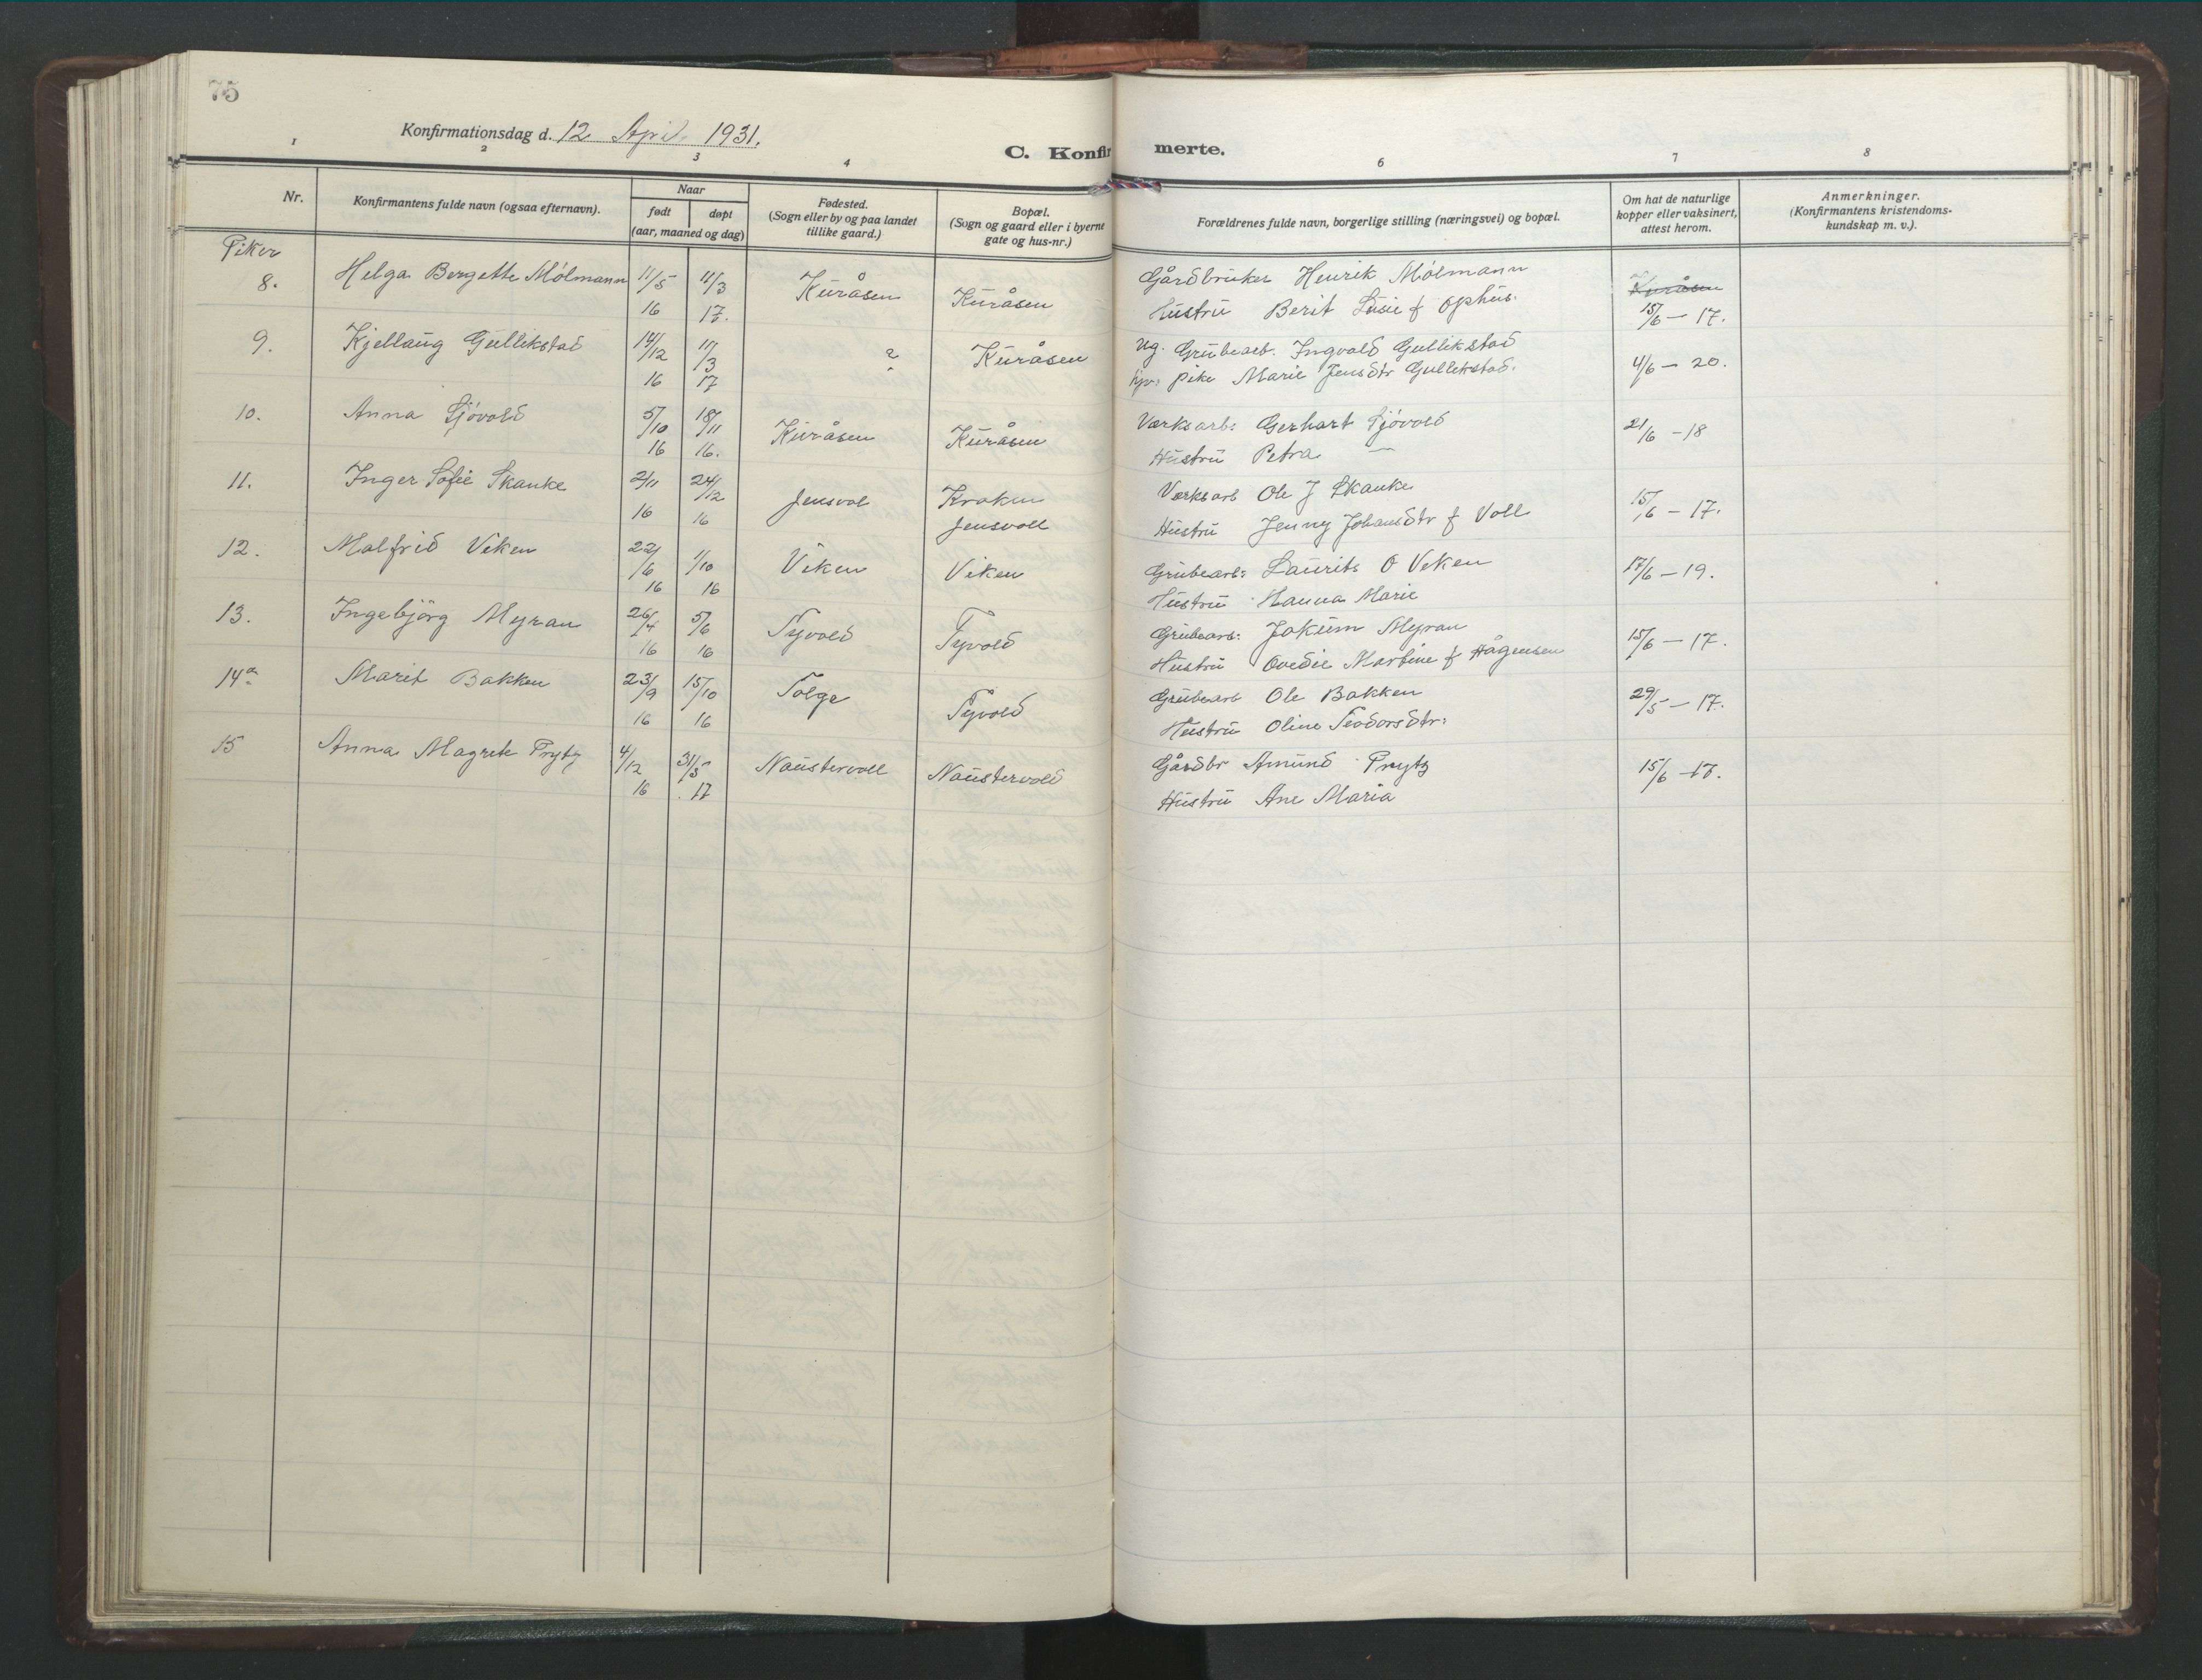 75
Konfirmationsdag d. 12 April 1931.
C. Konfirmerte.
1 2 3 4 6 7 8
Nr.
Konfirmantens fulde navn (ogsaa efternavn).
Naar
født døpt
(aar, maaned og dag)
Fødested.
(Sogn eller by og paa landet
tillike gaard.)
Bopæl.
(Sogn og gaard eller i byerne
gate og hus-nr.)
Forældrenes fulde navn, borgerlige stilling (næringsvei) og bopæl.
Om hat de naturlige
kopper eller vaksinert,
attest herom.
Anmerkninger.
(Konfirmantens kristendoms-
kundskap m. v.).
Piker
8. Helga Bergette Mólmann 11/5 11/3 Kuråsen Kuråsen Gårdbruker Henrik Mólmann Kuråsen
16 17. Hustru Berit Lusie f Ophus. 15/6 - 17.
9. Kjellaug Gullikstad 14/12 11/3 ? Kuråsen Ug. Grubearb. Ingvald Gullikstad
16 17 pike Marie Jensdtr Gullikstad. 4/6 - 20.
10. Anna Sjóvold 5/10 18/11 Kuråsen Kuråsen Verksarb: Gerhart Sjóvold 21/6 - 18
16 16. Hustru Petra —
11. Inger Sofie Skanke 2/11 24/12 Jensvol Kroken Verksarb Ole J Skanke 15/6 - 17.
16 16 Jensvoll Hustru Jenny Johansdtr f Voll
12. Malfrid Viken 22/6 1/10 Viken Viken Grubearb: Laurits O Viken 17/6 - 19.
16 16 Hustru Hanna Marie
13. Ingebjörg Myran 26/4 5/6 Tyvold Tyvold Grubearb: Jakum Myran 15/6 - 17.
16 16 Hustru Ovedie Martine f Hågensen
14a Marit Bakken 23/9 15/10 Tolge Tyvold Grubearb Ole Bakken 29/5 - 17.
16 16 Hustru Oline Teodorsdtr:
15 Anna Magrete Prytz 4/12 31/3 Naustervoll Naustervold Gårdbr Amund Prytz 15/6 - 17.
16 17 Hustru Ane Maria